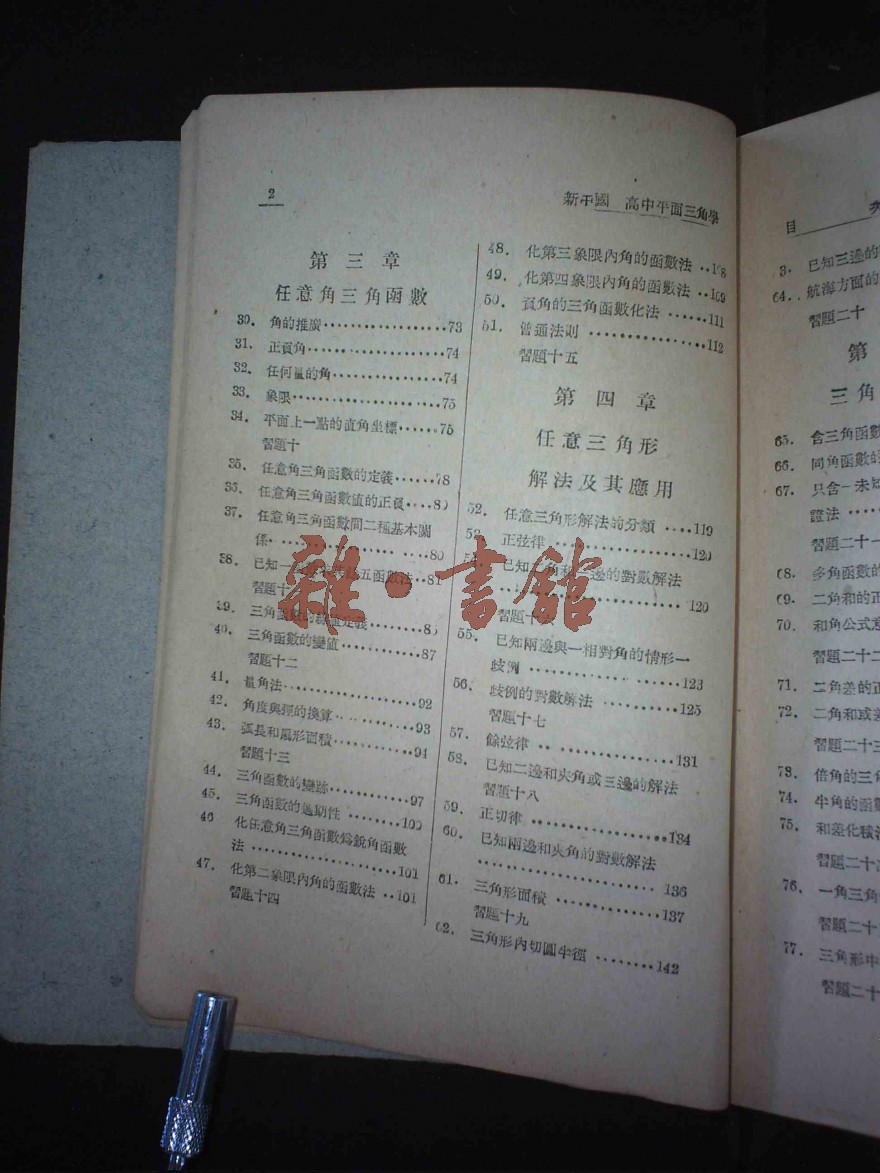 2
新中國 高中平面三角學
第三章
任意角三角函數
30. 角的推廣 73
31. 正負角 74
32. 任何量的角 74
33. 象限 75
34. 平面上一點的直角坐標 75
習題十
35. 任意角三角函數的定義 78
任意角三角函數值的正負
37. 任意角三角函數間二種基本關
係 80
38. 已知一 五函數法
39. 三角函數的 定義
40. 三角函數的變值 87
習題十二
41. 量角法 92
42. 角度與弳的換算 93
43. 弧長和扇形面積 94
習題十三
44. 三角函數的變跡 97
45. 三角函數的週期性 100
46 化任意角三角函數為銳角函數
法 101
47. 化第二象限內角的函數法 101
習題十四
48. 化第三象限內角的函數法 108
49. 化第四象限內角的函數法 109
50. 負角的三角函數化法 111
51. 普通法則 112
習題十五
第四章
任意三角形
解法及其應用
52. 任意三角形解法的分類 119
正弦律 120
已知 角和 邊的對數解法
120
習題十
55. 已知兩邊與一相對角的情形一
歧例 123
56. 歧例的對數解法 125
習題十七
57. 餘弦律 131
58. 已知二邊和夾角或三邊的解法
習題十八
59. 正切律 134
60. 已知兩邊和夾角的對數解法
136
61. 三角形面積 137
習題十九
62. 三角形內切圓半徑 142
雜·書館
目
已知三邊的
64. 航海方面的
習題二十
第
三角
65. 含三角函數
66. 同角函數的
67. 只含一未知
證法
習題二十一
68. 多角函數的
69. 二角和的正
70. 和角公式意
習題二十二
71. 二角差的正
72. 二角和或差
習題二十三
73. 倍角的三角
74. 半角的函數
75. 和差化積法
習題二十
76. 一角三角
習題二十
77. 三角形中
習題二十